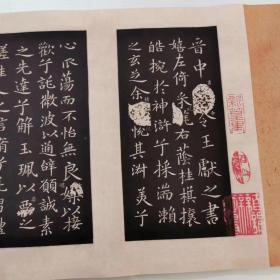 晋中令王獻之書
嬉左倚采旄右蔭桂旗攘
皓捥於神滸兮採湍瀨
之玄芝余悦其淑美兮
心振蕩而不怡無良媒以接
歡兮託微波以通辭願誠素
之先達兮解玉珮以要之
嗟佳人之信脩兮